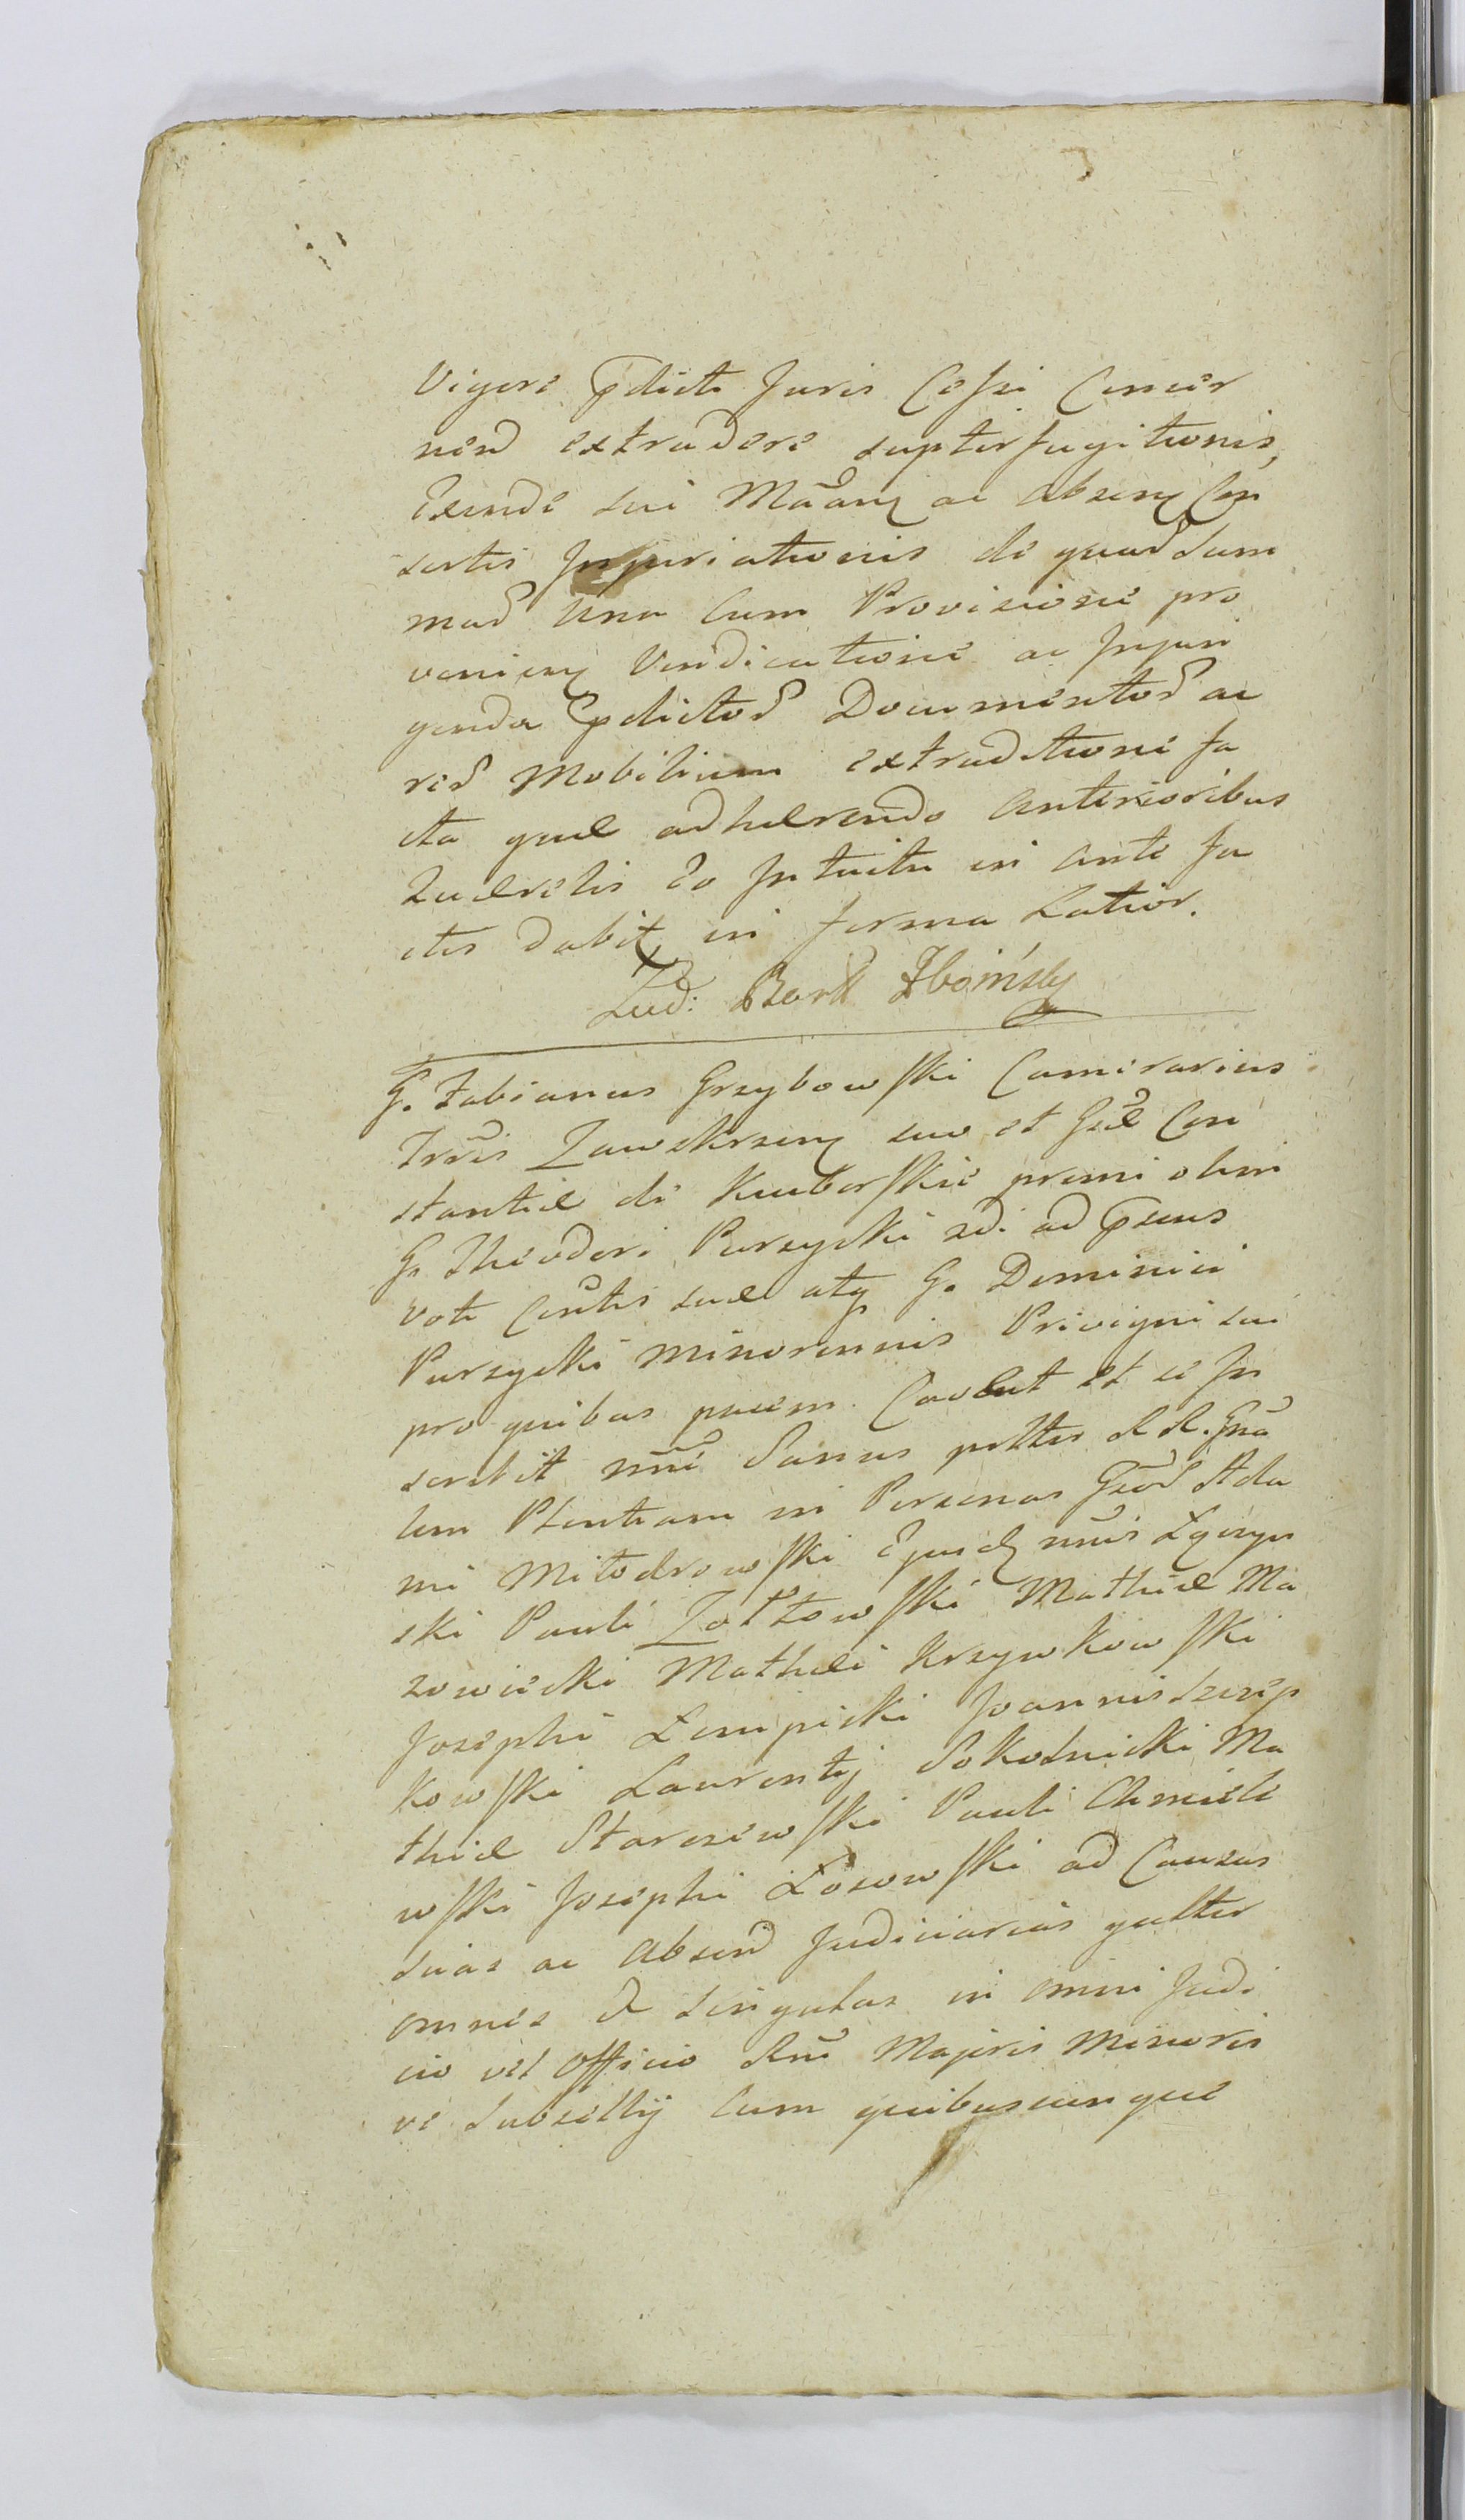 Vigore pdicti Juris Cessi Conser
vend extradere supterfugitionis,
Exinde sui Mãanq ac absenq Con
sortis Injuriationis de quard Sum
mard una cum Provisione pro
venienq Vendicatione ac Injun
genda pdictord Documentord ac
rerd Mobilium extraditione fa
cta quae adhaerendo anterioribus
Quaerelis eo Intuitu in ante fa
ctis dabit in forma Latior.
Lud: Bark Zboińsky
G. Fabianus Grzybowski Camerarius
Trris Zawskrzenq suo et Gsae Con
stantiae de Kuuborskie primi olim
G. Theodori Purzycki 2di ad psens
voti Contis suae atq G. Dominici
Purzycki Minorennis Privigni sui
pro quibus psuem. Cavet et se In
scribit nõie Sanus pdltis R R. Gna
lem Plentiam in Personas Gsord Ada
mi Miłodrowski Ejusdq nõis Łęczyn
ski Pauli Żołtowski Mathiae Ma
zowiecki Mathaei Krzywkowski
Josephi Łempicki Joannis Szczep
kowski Laurentij Sokolnicki Ma
thiae Starczewski Pauli Chmiele
wski Josephi Łosowski ad Causas
suas ac absend Judiciarias qualter
omnes & singulas in omni Judi
cio vel Officio Rni Majoris Minoris
ve Subsellij cum quibuscunque